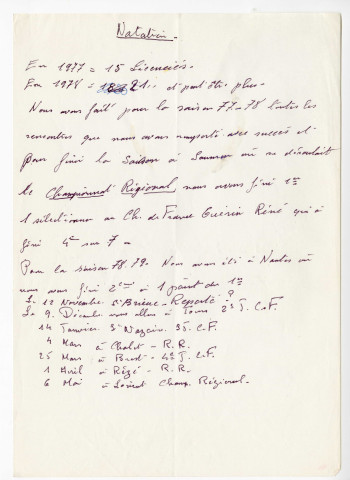 Natation.
En 1977 = 15 Licenciés.
En 1978 = 21.. et peut être plus.
Nous avons fait pour la saison 77-78 toutes les
rencontres que nous avons remporté avec succès et
pour finir la saison à Saumur où se déroulait
le Championnat Régional, nous avons fini 1er
1 sélectionné au Ch. de France Guérin Réné qui a
fini 4e sur 7 =
Pour la saison 78.79. Nous avons été à Nantes où
nous avons fini 2ème à 1 point du 1er
Le 12 Novembre St Brieuc - Reporté ?
Le 9. Décembre nous allons à Tours 2e J. C.F.
14 Janvier St Nazaire 3e J. C.F.
4 Mars à Cholet - R.R.
25 Mars à Brest - 4e J. C.F.
1 Avril à Rézé - R.R.
6 Mai à Champ. Régional.